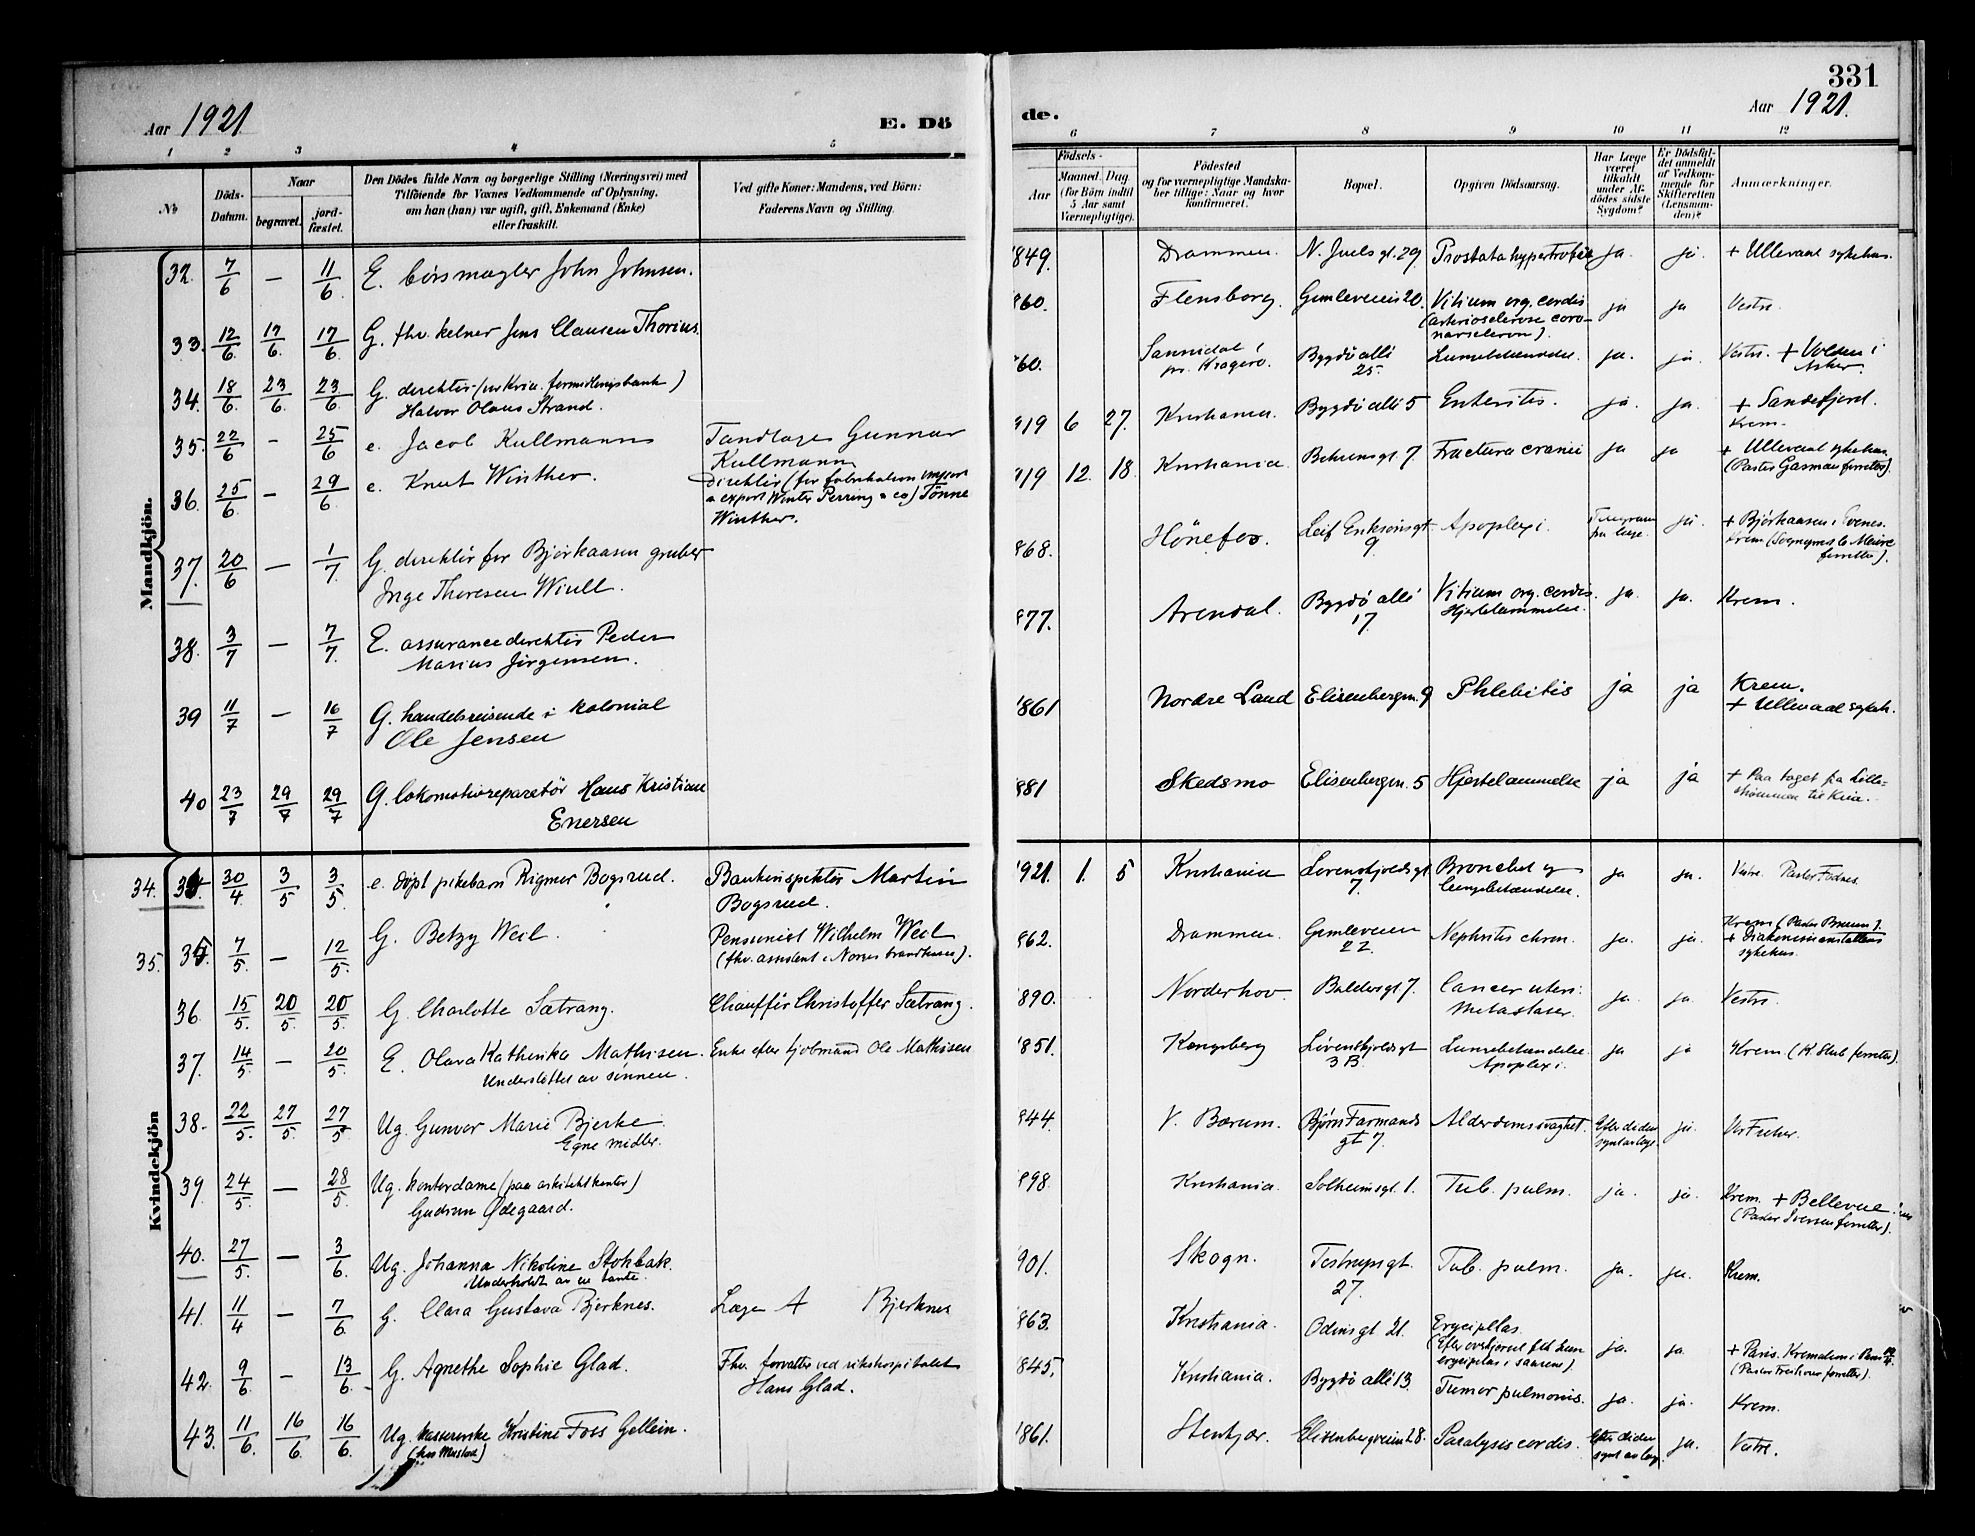 331
Aar 1921 E. Dö
de. Aar 1921.
1 2 3 4 5
6 7 8 9 10 11 12
No
Döds-Datum.
Naar
begravet.
jord-fæstet.
Den Dödes fulde Navn og borgerlige Stilling (Næringsvei) med
Tilföiende for Voxnes Vedkommende af Oplysning,
om han (hun) var ugift, gift, Enkemand (Enke)
eller fraskilt.
Ved gifte Koner: Mandens, ved Börn:
Faderens Navn og Stilling.
Födsels-
Aar
Maaned. Dag.
(for Börn indtil
5 Aar samt
Værnepligtige).
Födested
og for værnepligtige Mandska-
ber tillige: Naar og hvor
konfirmeret.
Bopæl.
Opgiven Dödsaarsag.
Har Læge
været
tilkaldt
under Af-
dödes sidste
Sygdom?
Er Dödsfal-
det anmeldt
af Vedkom-
mende for
Skifteretten
(Lensman-
den)?
Anmærkninger.
Mandkjön.
32. 7/6 — 11/6 E. börsmægler John Johnsen. 849. Drammen. N. Juels gt. 29. Prostatahypertrofie ja. ja. + Ullevaal sykehus.
33. 12/6. 17/6. 17/6. G. fhv. kelner Jens Clausen Thorius. 860. Flensborg. Gimleveien 20. Vitium org. cordis
(arteriosclerose coro-
narsclerose). ja ja Vestre.
34. 18/6. 23/6. 23/6. G. direktör (ved Kria. formidlingsbank)
Halvor Olaus Strand. 860. Sannidal i
pr. Kragerö. Bygdö allé
25. Lungebetændelse. ja. ja. Vestr. + Volden i
Asker.
35. 22/6 - 25/6 e. Jacob Kullmann Tandlæge Gunnar
Kullmann 919 6 27. Kristiania. Bygdö allé 5 Enteritis. ja. ja. + Sandefjord.
Krem.
36. 25/6 — 29/6 e. Knut Winther. Direktör (for fabrikation import
& export Winter Perring & co) Tönne
Winther. 919 12. 18. Kristiania. Behrensgt. 7 Fractura cranii ja ja + Ullevaal sykehus
(Pastor Gasman forretter).
37. 20/6 — 1/7 G. direktör for Björkaasen gruber
Inge Thoresen Wiull. 868. Hönefos. Leif Eriksönsgt.
9. Apoplexi. Telegram
fra læge. ja. + Björkaasen i Evenes.
Krem (Sogneprest la Meuire
forretter).
38. 3/7 — 7/7. E. assurancedirektör Peder
Marius Jörgensen. 877. Arendal. Bygdö allé
17. Vitium org. cordis.
Hjertelammelse. ja. ja. Krem.
39 11/7 — 16/7 G. handelsreisende i kolonial
Ole Jensen 1861 Nordre Land Elisenbergvn. 9 Phlebitis ja ja Krem.
+ Ullevaal sykeh.
40 23/7 29/7 29/7 G. lokomotivreparatör Hans Kristian
Enersen 881 Skedsmo Elisenbergvn. 5 Hjertelammelse ja ja + Paa toget fra Lille-
strömmen til Kria.
Kvindekjön
34. 30/4 3/5 3/5. e. döpt pikebarn Rigmor Bogsrud. Bankinspektör Martin
Bogsrud. 1921. 1. 5 Kristiania Lövenskjoldsgt.
7 Bronchit og
lungebetændelse. ja ja. Vestre. Pastor Fodnes.
35. 7/5. — 12/5. G. Betzy Weil. Pensionist Wilhelm Weil
(fhv. assistent i Norges brandkasse). 862. Drammen. Gimleveien
22. Nephritis chron. ja. ja. Krem (Pastor Bruun).
+ Diakonisseanstaltens
sykehus.
36 15/5. 20/5. 20/5. G. Charlotte Sætrang. Chaufför Christoffer Sætrang. 890. Norderhov. Baldersgt 7. Cancer uteri.
Metastaser. ja. ja. Vestre.
37. 14/5. — 20/5. E. Olava Kathinka Mathisen.
Understöttet av sönnen. Enke efter tjobmand Ole Mathisen 1851. Kongsberg Lövenskjoldsgt
3 B. Lungebetændelse.
Apoplexi. ja ja Krem (K. Stub forretter).
38. 22/5. 27/5. 27/5 Ug. Gunvor Marie Bjerke.
Egne midler. 844. V. Bærum. Björn Farmands
gt 7. Alderdomssvaghet. Efter döden
synt av læge. ja. Ves Frelser.
39. 24/5. — 28/5. Ug. kontordame (paa arkitektkontor)
Gudrun Ødegaard. 898. Kristiania. Solheimsgt. 1. Tub. pulm. ja. ja. Krem. + Bellevue
(Pastor Iversen forretter).
40. 27/5. — 3/6. Ug. Johanna Nikoline Stokbak.
Underholdt av en tante. 901. Skogn. Tostrupsgt.
27. Tub. pulm. ja. ja. Krem.
41. 11/4 — 7/6. G. Clara Gustava Bjerknes. Læge A Bjerknes 863. Kristiania. Odinsgt 21. Erysipelas.
(Efter overkjørsel
erysipelas i saarene) ja. ja + Paris. Krematoriet i Paris
(Pastor forretter).
42. 9/6. — 13/6. G. Agnethe Sophie Glad. Fhv. forvalter ved rikshospitalet
Hans Glad. 845. Kristiania. Bygdö allé 13. Tumor pulmonis. ja. ja. Krem.
43. 11/6. 16/6 16/6 Ug. kassererske Kristine Foss Gellein.
(hos Mustad) 1861. Stenkjær. Elisenbergveien 28. Paralysis cordis. Efter döden
synt av læge. ja. Vestre.